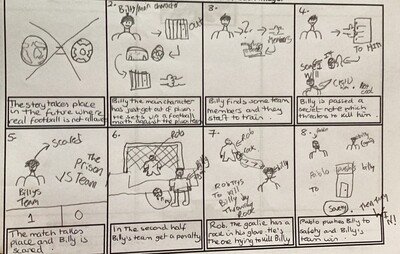 The story takes place
in the future where
real football is not allowed
2. Billy/main character
out
Billy the main character
has just got out of prison.
He sets up a football
match against the prison
3.
2
members
Billy finds some team
members and they
start to train.
4.
To Him
Billy is passed a
secret note which
threatens to kill him.
5.
→ scared
Billys
Team
The
Prison
VS Team
1 0
The match takes
place and Billy is
scared
6.
Rob
Billy
In the second half
Billy's team get a penalty
7.
Rob
Rock
Billy
Rob trys
To kill
Billy by
Throwing
Rock
Rob, the goalie, has a
rock in his glove. He's
the one trying to kill Billy
8.
Pablo pushes billy
To
Safety, Then They
WIN!
Pablo pushes Billy to
safety and Billy's
team win.